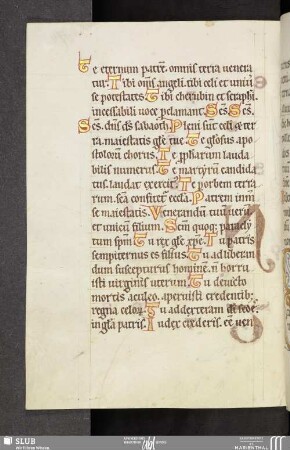 Te eternum patrē. omnis terra venera
tur. Tibi oms̄ angeli. tibi celi et univer
se potestates. Tibi cherubin et seraphī.
incessabili uoce pclamant. Scs̄. Scs̄.
Scs̄. dn̄s ds̄ sabaoth. Pleni sūt celi et ter
ra. maiestatis glē tue. Te glōsus. apo
stoloꝝ chorus. Te ꝓphetarum lauda
bilis numerus. Te martyrū candida
tus. laudat exercit᷒. Te ꝑ orbem terra
rum. scā confitet᷒ eccła. Patrem inm̄
se maiestatis. Venerandū tuū
et unicū filium. Scm̄ quoq; paracly
tum spm̄. Tu rex glē xp̄e. Tu patris
sempiternus es filius. Tu ad liberan
dum suscepturus hominē. n̄ horru
isti uirginis uterum. Tu deuicto
mortis aculeo. aperuisti credentib;
regna celoꝝ. Tu ad dexteram dī sedes.
in glā patris. Iudex crederis. eē uen
SLUB
Wir führen Wissen.
MARIENTHAL